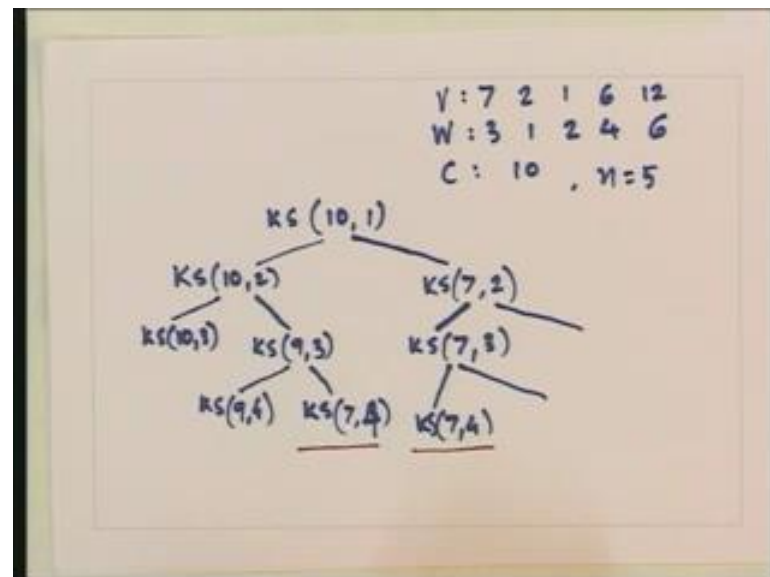 V : 7 2 1 6 12
W : 3 1 2 4 6
C : 10 , n=5
KS (10,1)
KS(10,2) KS(7,2)
KS(10,3) KS(9,3) KS(7,3)
KS(9,4) KS(7,4) KS(7,4)